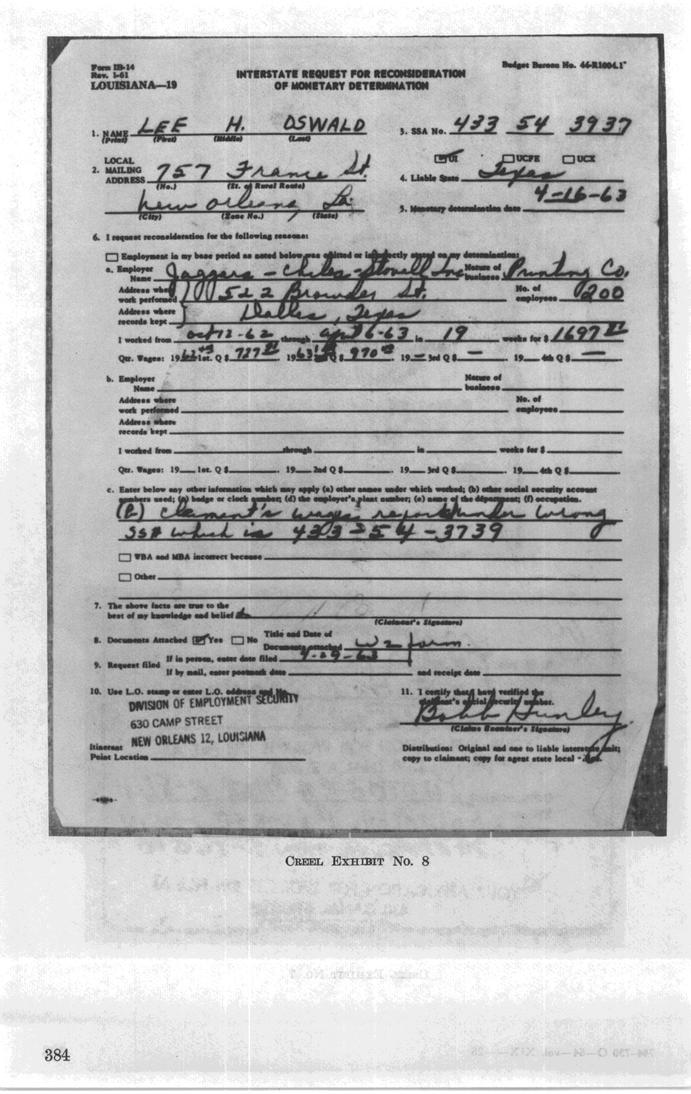 Form IB-14
Rev. 1-61
LOUISIANA—19
Budget Bureau No. 44-R1004.1
INTERSTATE REQUEST FOR RECONSIDERATION
OF MONETARY DETERMINATION
1. NAME LEE H. OSWALD 3. SSA No. 433 54 3937
(Print) (First) (Middle) (Last)
LOCAL
2. MAILING ADDRESS 757 France St. UI UCFE UCX
(No.) (St. or Rural Route) 4. Liable State Texas
New Orleans, La. 5. Monetary determination date 4-16-63
(City) (Zone No.) (State)
6. I request reconsideration for the following reasons:
Employment in my base period as noted below was omitted or incorrectly stated on my determination:
a. Employer Name Jaggars-Chiles-Stovall Inc Nature of business Printing Co.
Address where work performed 522 Browder St. No. of employees 200
Address where records kept Dallas, Texas
I worked from Oct 12-62 through Apr 6-63 in 19 weeks for $ 1697
Qtr. Wages: 1962 1st. Q $ 727 1963 Q $ 970 19 — 3rd Q $ — 19 4th Q $ —
b. Employer Name Nature of business
Address where work performed No. of employees
Address where records kept
I worked from through in weeks for $
Qtr. Wages: 19 1st. Q $ , 19 2nd Q $ , 19 3rd Q $ , 19 4th Q $
c. Enter below any other information which may apply (a) other names under which worked; (b) other social security account
numbers used; (c) badge or clock number; (d) the employer's plant number; (e) name of the department; (f) occupation.
(b) Clament's wages report under wrong
SS# which is 433-54-3739
WBA and MBA incorrect because
Other
7. The above facts are true to the
best of my knowledge and belief
(Claimant's Signature)
8. Documents Attached Yes No Title and Date of Documents attached W2 form.
9. Request filed If in person, enter date filed 4-29-63
If by mail, enter postmark date and receipt date
10. Use L.O. stamp or enter L.O. address and No. 11. I certify that I have verified the
claimant's social security number.
DIVISION OF EMPLOYMENT SECURITY
630 CAMP STREET Bobb Hunley
NEW ORLEANS 12, LOUISIANA (Claims Examiner's Signature)
Itinerant
Point Location
Distribution: Original and one to liable interstate unit;
copy to claimant; copy for agent state local
CREEL EXHIBIT No. 8
384